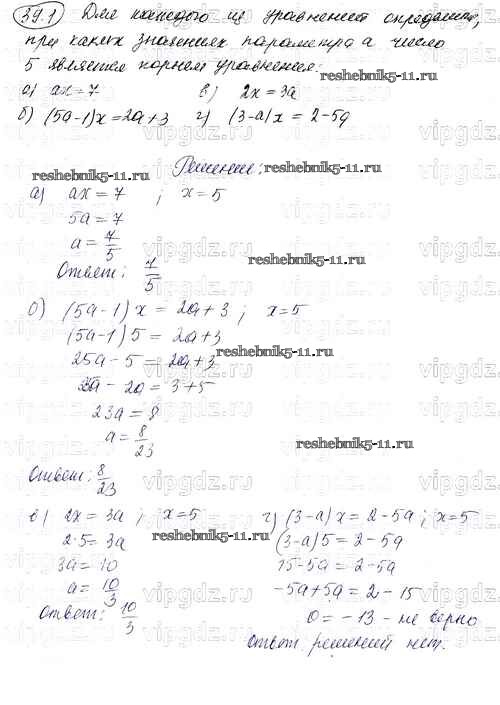 39.1 Для каждого из уравнений определите,
при каких значениях параметра а число
5 является корнем уравнения:
а) ax = 7 в) 2x = 3a
б) (5a-1)x = 2a+3 г) (3-a)x = 2-5a
reshebnik5-11.ru
Решение:
а) ax = 7 ; x = 5
5a = 7
a = 7/5
Ответ: 7/5
reshebnik5-11.ru
б) (5a-1)x = 2a+3 ; x=5
(5a-1)5 = 2a+3
25a-5 = 2a+3
reshebnik5-11.ru
25a - 2a = 3+5
23a = 8
a = 8/23
reshebnik5-11.ru
Ответ: 8/23
в) 2x = 3a ; x=5 г) (3-a)x = 2-5a ; x=5
2·5 = 3a (3-a)5 = 2-5a
3a = 10 15-5a = 2-5a
a = 10/3 -5a+5a = 2-15
Ответ: 10/3 0 = -13 - не верно
Ответ решений нет.
vipgdz.ru